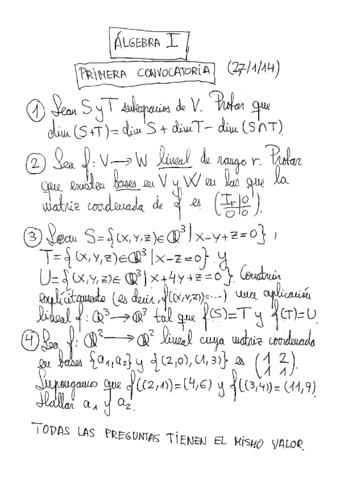 ÁLGEBRA I
PRIMERA CONVOCATORIA (27/1/14)
① Sean S y T subespacios de V. Probar que
dim (S+T) = dim S + dim T - dim (S∩T).
② Sea f: V → W lineal de rango r. Probar
que existen bases en V y W en las que la
matriz coordenada de f es (Ir|0 / 0|0).
③ Sean S={(x,y,z)∈ℚ³ | x-y+z=0},
T={(x,y,z)∈ℚ³ | x-z=0} y
U={(x,y,z)∈ℚ³ | x+4y+z=0}. Construir
explícitamente (es decir, f((x,y,z))=...) una aplicación
lineal f: ℚ³ → ℚ³ tal que f(S)=T y f(T)=U.
④ Sea f: ℚ² → ℚ² lineal cuya matriz coordenada
en bases {a₁,a₂} y {(2,0),(1,3)} es (1 2 / 1 1).
Supongamos que f((2,1))=(4,6) y f((3,4))=(11,9).
Hallar a₁ y a₂.
TODAS LAS PREGUNTAS TIENEN EL MISMO VALOR.